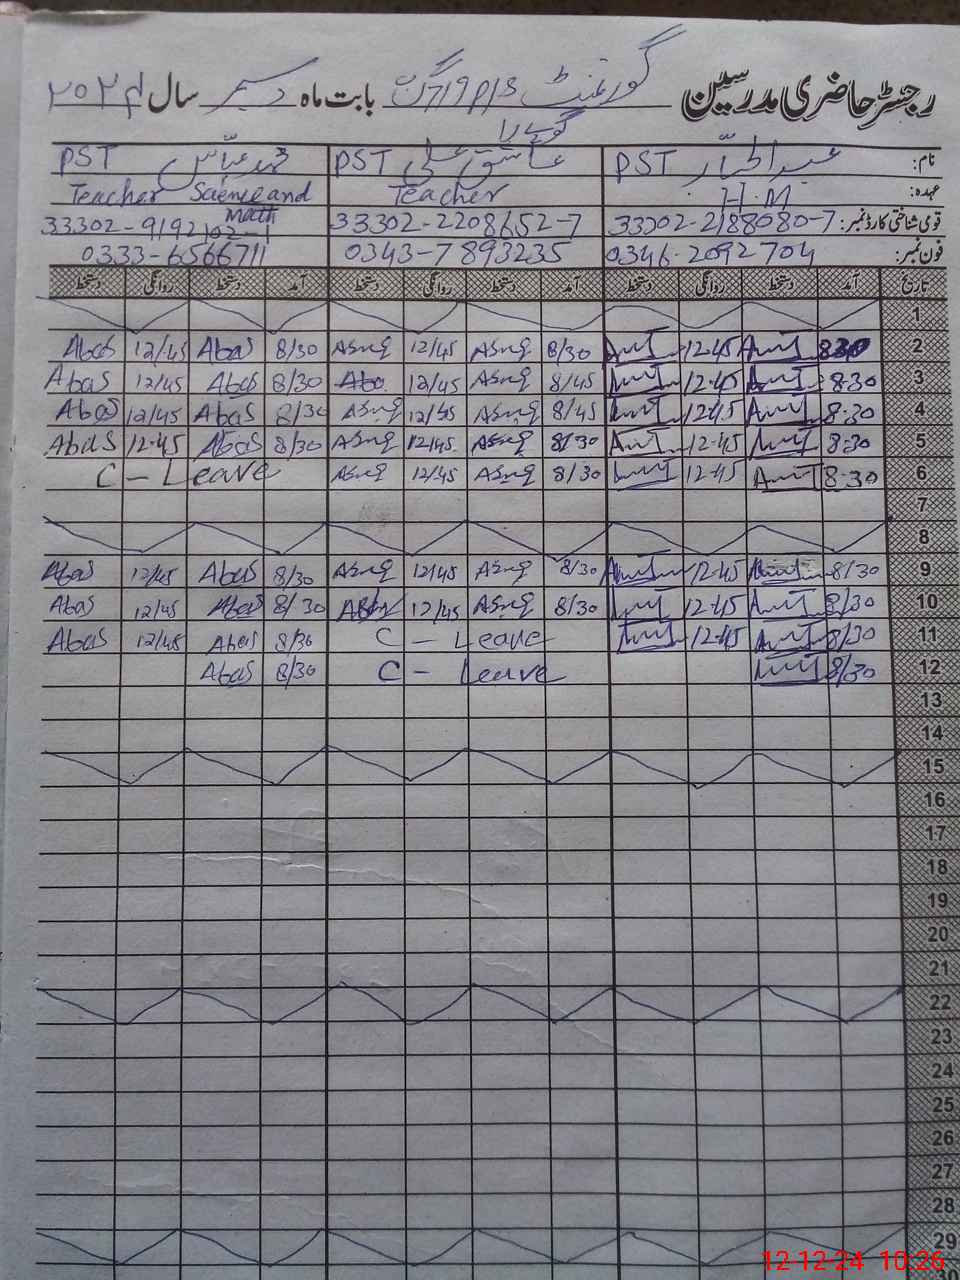 رجسٹر حاضری مدرسین گورنمنٹ بابت ماہ دسمبر سال ۲۰۲۴
نام: عبدالجبار PST عاشق علی PST محمد عباس PST
عہدہ: H.M Teacher Teacher Science and math
قومی شناختی کارڈ نمبر: 33302-2188080-7 33302-2208652-7 33302-9192102-1
فون نمبر: 0346-2092704 0343-7893235 0333-6566711
تاریخ آمد دستخط روانگی دستخط آمد دستخط روانگی دستخط آمد دستخط روانگی دستخط
1
2 8 30 12-45 8/30 Asng 12/45 Asng 8/30 Abas 12/45 Abas
3 8-30 12-45 8/45 Asng 12/45 8/30 Abas 12/45 Abas
4 8-30 12-45 8/45 Asng 12/45 Asng 8/30 Abas 12/45 Abas
5 8-30 12-45 8/30 Asng 12/45 Asng 8/30 Abas 12-45 Abas
6 8-30 12-45 8/30 Asng 12/45 Asng C - Leave
7
8
9 8/30 12-45 8/30 Asng 12/45 Asng 8/30 Abas 12/45 Abas
10 8/30 12-45 8/30 Asng 12/45 8/30 Abas 12/45 Abas
11 8/30 12-45 C - Leave 8/30 Abas 12/45 Abas
12 8/30 C - Leave 8/30 Abas
13
14
15
16
17
18
19
20
21
22
23
24
25
26
27
28
29
30
12-12-24 10:26